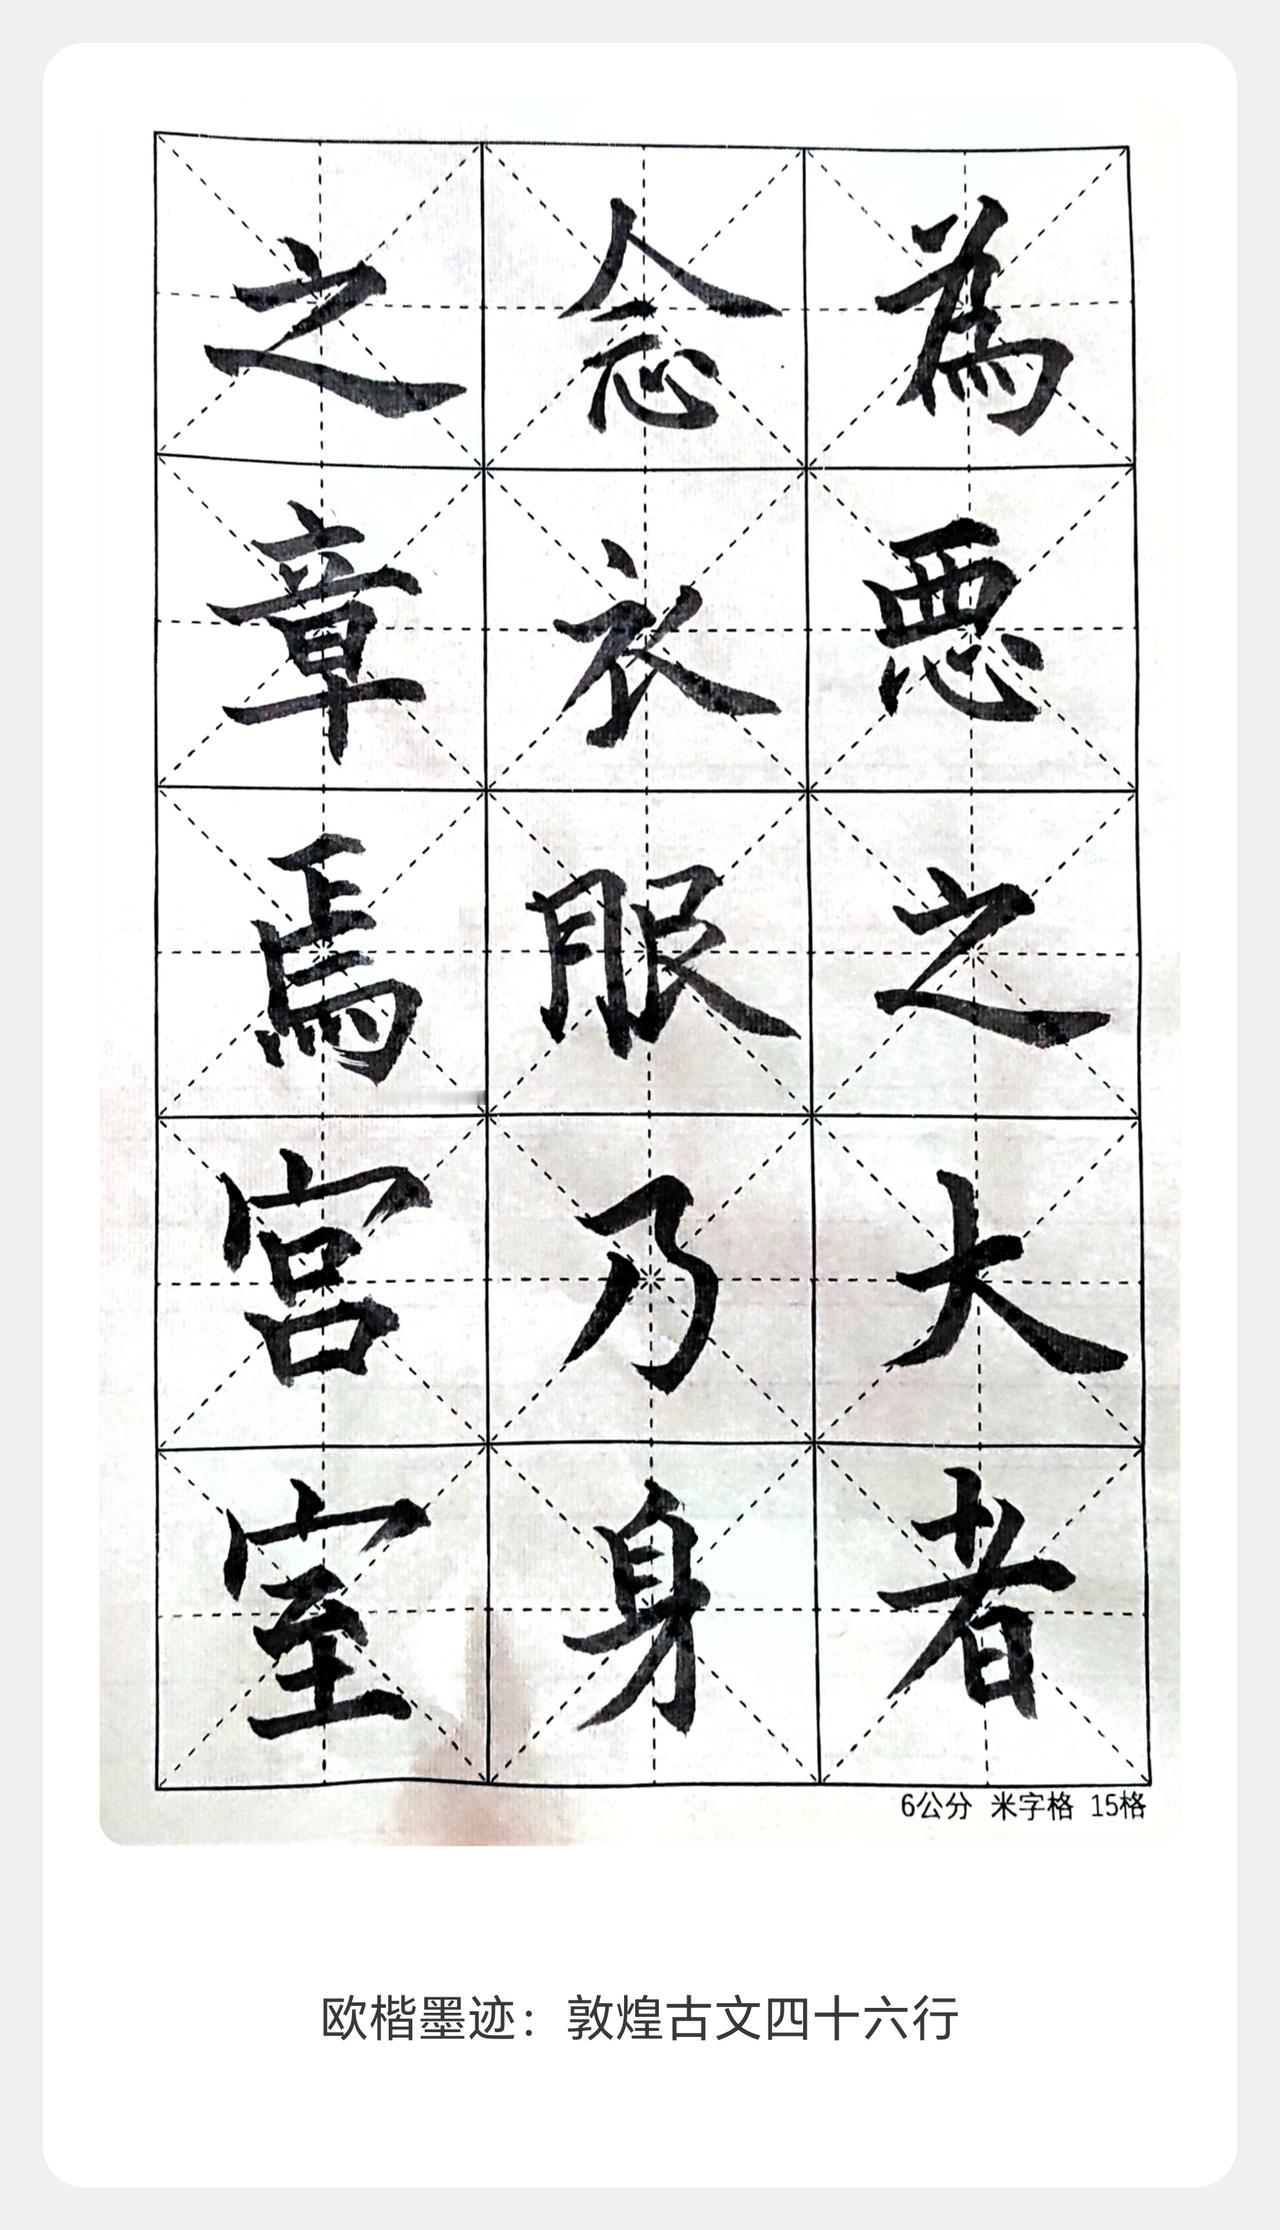 為悪之大者
念衣服乃身
之章焉宫室
6公分 米字格 15格
欧楷墨迹：敦煌古文四十六行